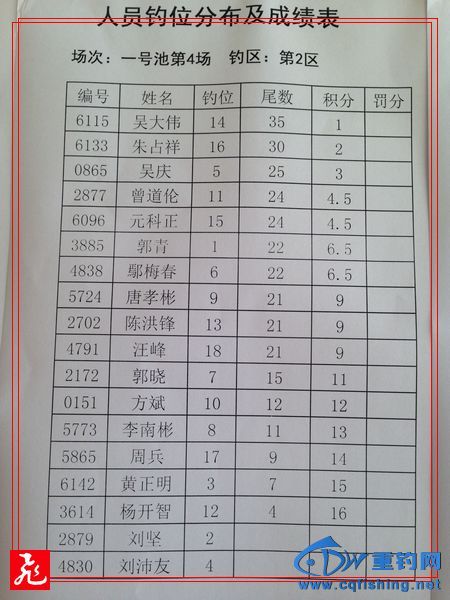 人员钓位分布及成绩表
场次：一号池第4场 钓区：第2区
编号 姓名 钓位 尾数 积分 罚分
6115 吴大伟 14 35 1
6133 朱占祥 16 30 2
0865 吴庆 5 25 3
2877 曾道伦 11 24 4.5
6096 元科正 15 24 4.5
3885 郭青 1 22 6.5
4838 鄢梅春 6 22 6.5
5724 唐孝彬 9 21 9
2702 陈洪锋 13 21 9
4791 汪峰 18 21 9
2172 郭晓 7 15 11
0151 方斌 10 12 12
5773 李南彬 8 11 13
5865 周兵 17 9 14
6142 黄正明 3 7 15
3614 杨开智 12 4 16
2879 刘坚 2
4830 刘沛友 4
重钓网
www.cqfishing.net